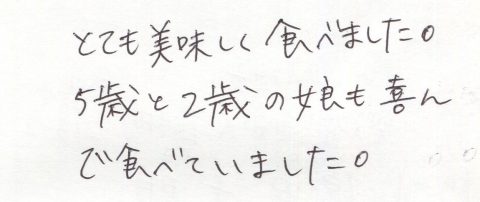 とても美味しく食べました。
5歳と2歳の娘も喜ん
で食べていました。